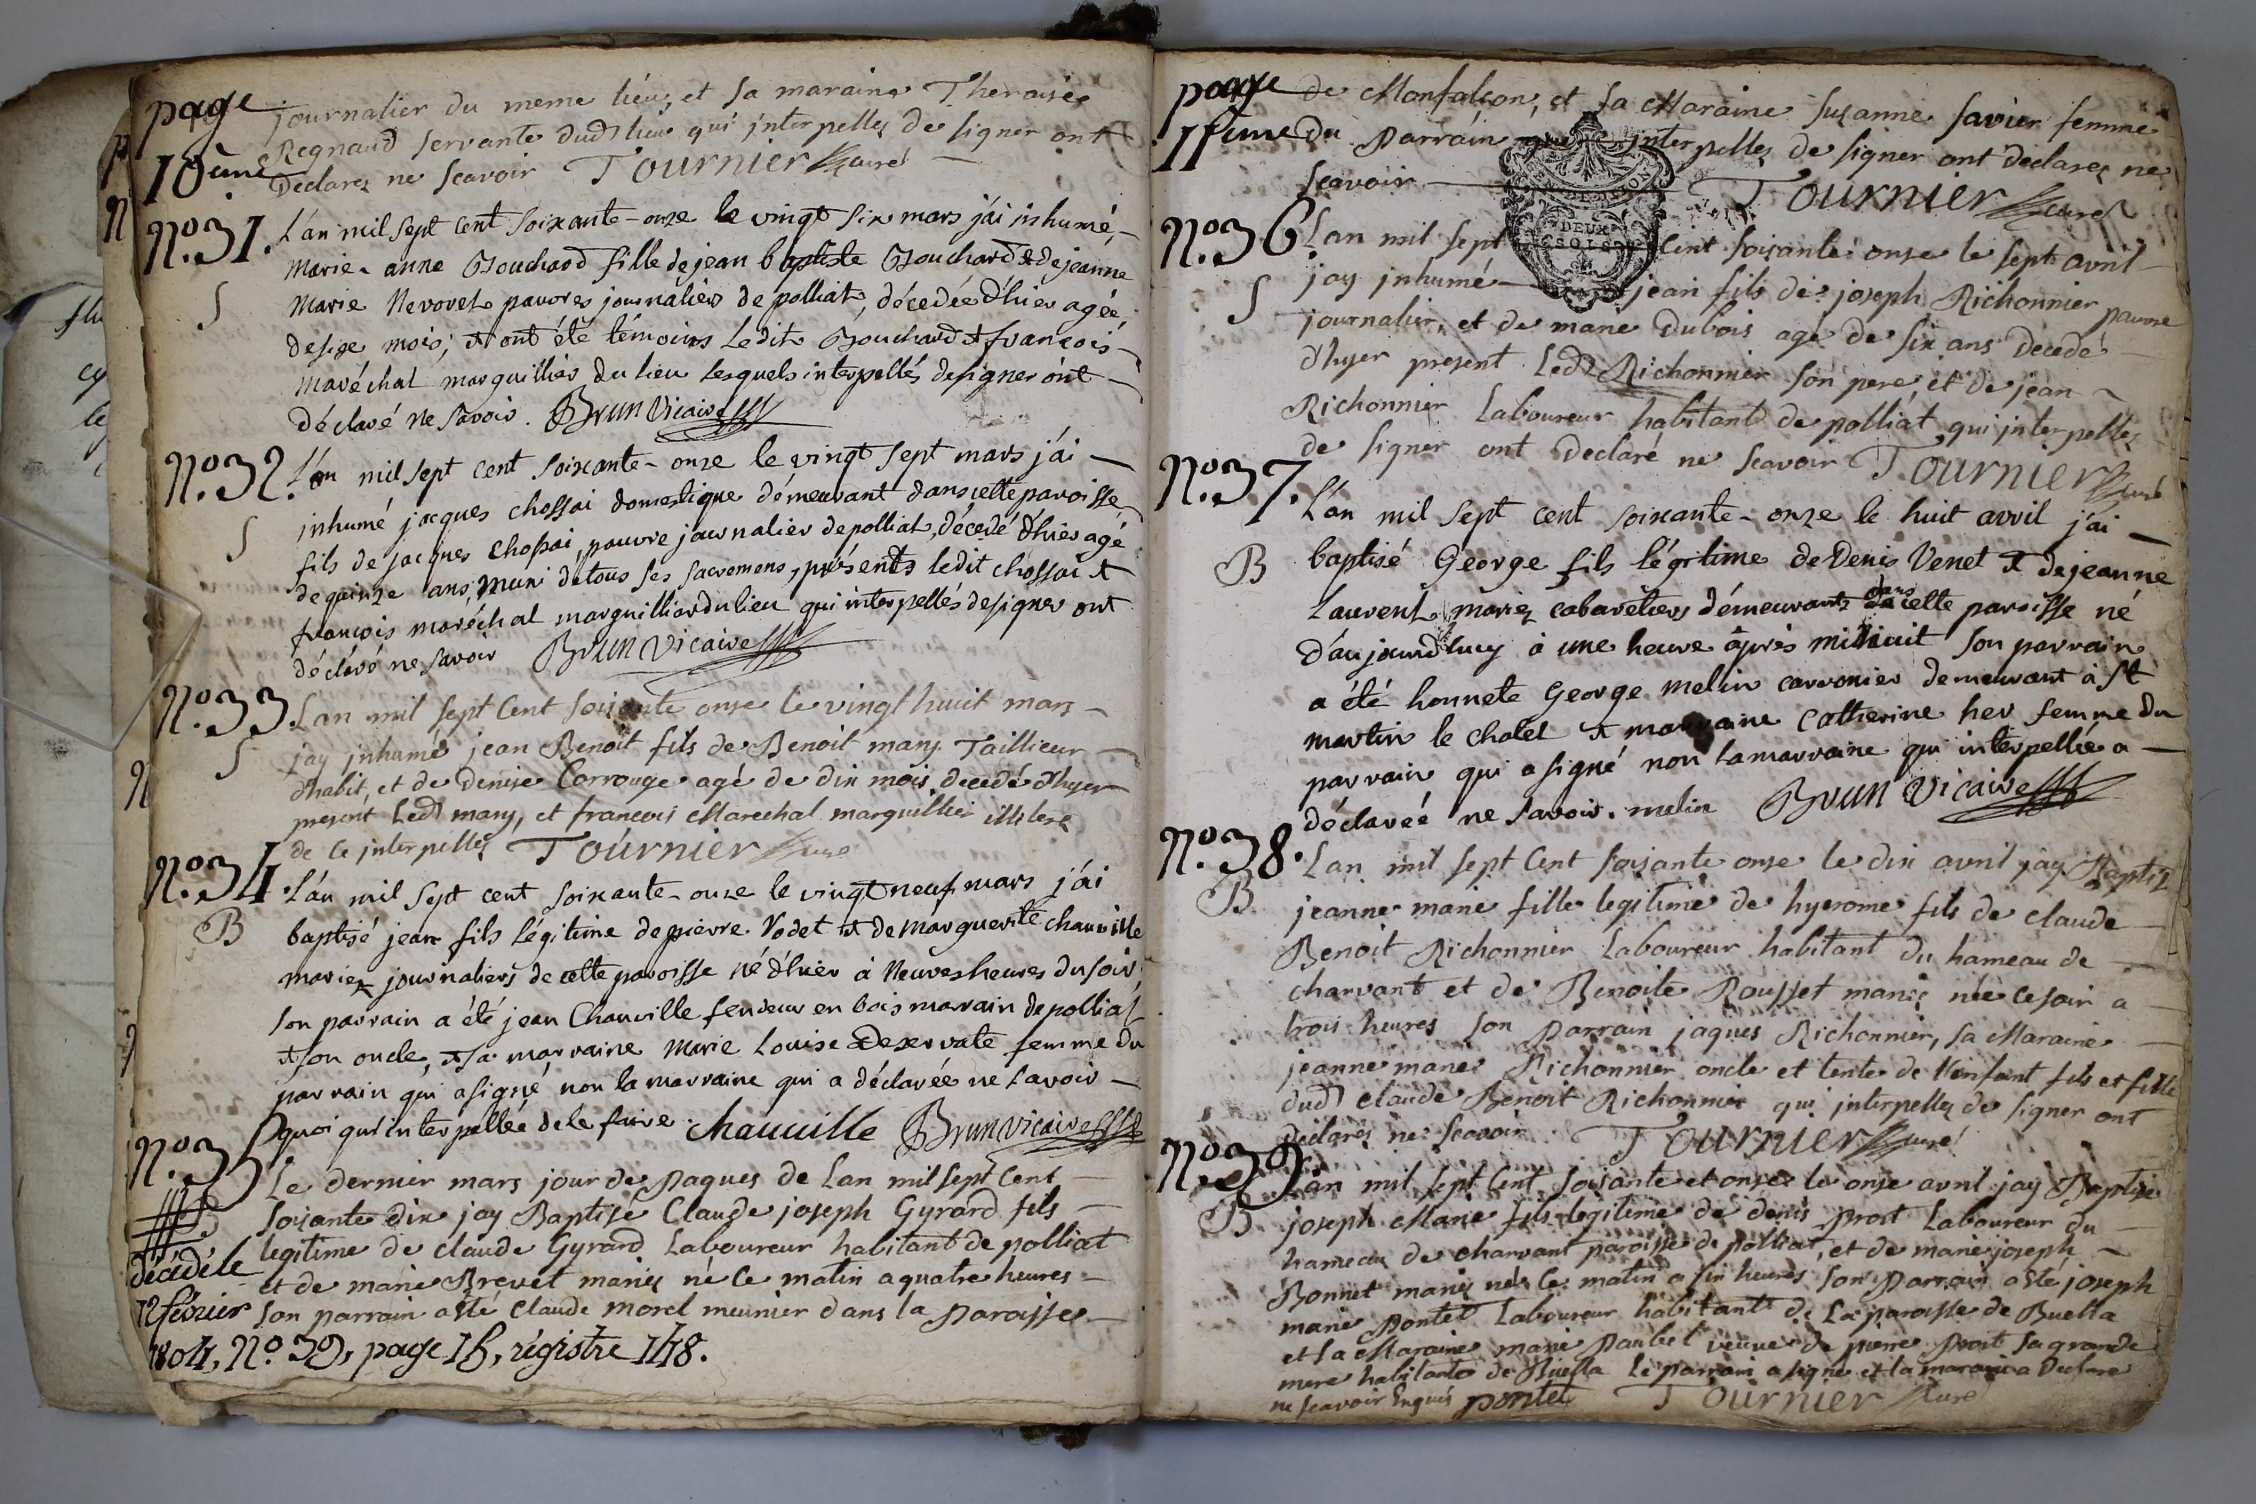 page
10ème
journalier du meme lieu, et sa maraine Theraise
Regnaud servante dud lieu qui interpellez de signer ont
declarez ne scavoir Tournier curé
N.o 31.
S
L'an mil sept cent soixante-onze le vingt six mars j'ai inhumé
marie-anne Bouchard fille de jean baptiste Bouchard & de jeanne
marie Nevoret pauvres journaliers de polliat, décedée d'hier agée
de seize mois; & ont été témoins ledit Bouchard & françois
maréchal marguillier du lieu lesquels interpellés de signer ont
déclaré ne savoir. Brun vicaire
N.o 32.
S
L'an mil sept cent soixante-onze le vingt sept mars j'ai
inhumé jacques chossai domestique démeurant dans cette paroisse
fils de jacques chossai, pauvre journalier de polliat, décedé d'hier agé
de quinze ans, muni de tous ses sacremens, présents ledit chossai &
françois maréchal marguillier du lieu qui interpellés de signer ont
déclaré ne savoir Brun vicaire
N.o 33.
S
Lan mil sept Cent soixante onze le vingt huit mars
jay inhumé jean Benoit fils de Benoit mary Taillieur
d'habit, et de Denise Corrouge agé de dix mois decedé d'hyer
present Led mary, et francois Marechal marguillier illiterez
de ce interpellez Tournier curé
N.o 34.
B
L'an mil sept cent soixante-onze le vingt neuf mars j'ai
baptisé jean fils légitime de pierre Vodet & de marguerite chauville
mariez journaliers de cette paroisse né d'hier à Neuves heures du soir
son parrain a été jean Chauville fendeur en bois marrain de polliat
& son oncle, & sa marraine marie Louise Deservate femme du
parrain qui a signé, non la marraine qui a déclarée ne savoir
quoi qu'interpellée de le faire. chauville Brun vicaire
N.o 35.
B
décédé le
12 février
1804, N.o 39, page 16, régistre 148.
Le dernier mars jour de Paques de Lan mil sept Cent
soixante dix jay Baptisé Claude joseph Gyrard fils
legitime de claude Gyrard Laboureur habitant de polliat
et de marie Brevet mariez né Ce matin a quatre heures
son parrain a été Claude morel meunier dans la Paroisse
page
11ème
de Monfalcon, et sa Maraine susanne savier femme
du Parrain interpellez de signer ont declarez ne
scavoir Tournier curé
DEUX
SOLS
N.o 36.
S
Lan mil sept Cent soixante onze le sept avril
jay inhumé jean fils de joseph Richonnier pauvre
journalier, et de marie Dubois agé de six ans decedé
d'hyer present Led Richonnier son pere et de jean
Richonnier Laboureur habitant de polliat qui interpellez
de signer ont declaré ne scavoir Tournier curé
N.o 37.
B
L'an mil sept cent soixante-onze le huit avril j'ai
baptisé George fils légitime de Denis Venet & de jeanne
Laurent mariez cabaretiers démeurants dans cette paroisse né
d'aujourd'huy à une heure après minuit son parrain
a été honnete George melin carronier demeurant à St
martin le chatel & marraine Catherine her femme du
parrain qui a signé non la marraine qui interpellée a
déclarée ne savoir. melin Brun vicaire
N.o 38.
B
Lan mil sept Cent soixante onze le dix avril jay Baptizé
jeanne marie fille legitime de hyerome fils de claude
Benoit Richonnier Laboureur habitant du hameau de
charvant et de Benoite Rousset mariez née ce soir a
trois heures son Parrain jaques Richonnier, sa Maraine
jeanne marie Richonnier oncle et tente de l'enfant fils et fille
dud claude Benoit Richonnier qui interpellez de signer ont
declarez ne scavoir Tournier curé
N.o 39.
B
Lan mil sept Cent soixante et onze le onze avril jay Baptisé
joseph Marie fils legitime de denis Prost Laboureur du
hameau de charvant paroisse de polliat, et de marie joseph
Bonnet mariez né Ce matin a six heures son Parrain a été joseph
marie Pontet Laboureur habitant de La paroisse de Buella
et La Maraine marie Paubel veuve de pierre Prost sa grande
mere habitante de Buella le parrain a signé et la maraine a declaré
ne scavoir Enquis pontet Tournier curé